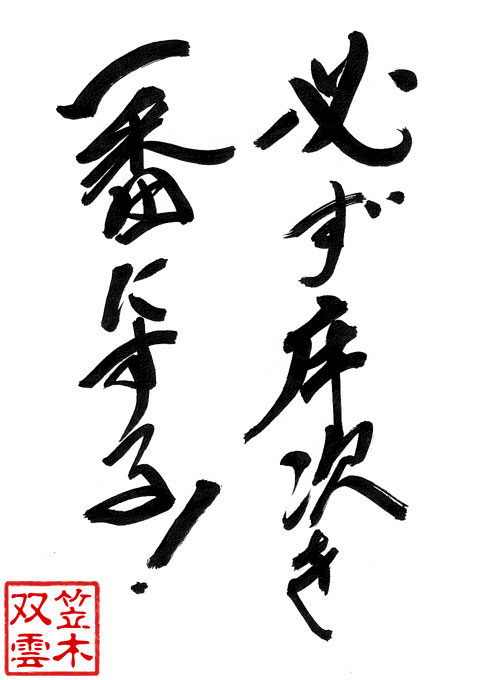 必ず床次を
一番にする!
笠木
双雲